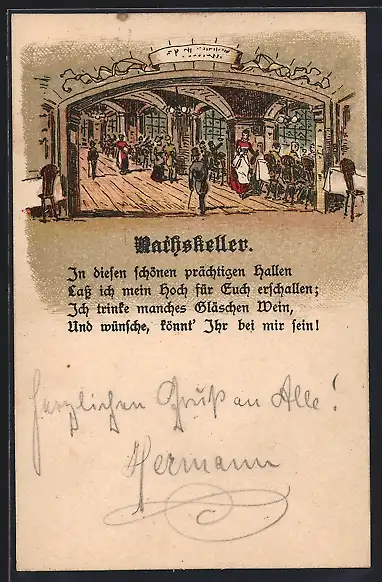 Rathskeller.
In diesen schönen prächtigen Hallen
Laß ich mein Hoch für Euch erschallen;
Ich trinke manches Gläschen Wein,
Und wünsche, könnt' Ihr bei mir sein!
Herzlichen Gruß an Alle!
Hermann